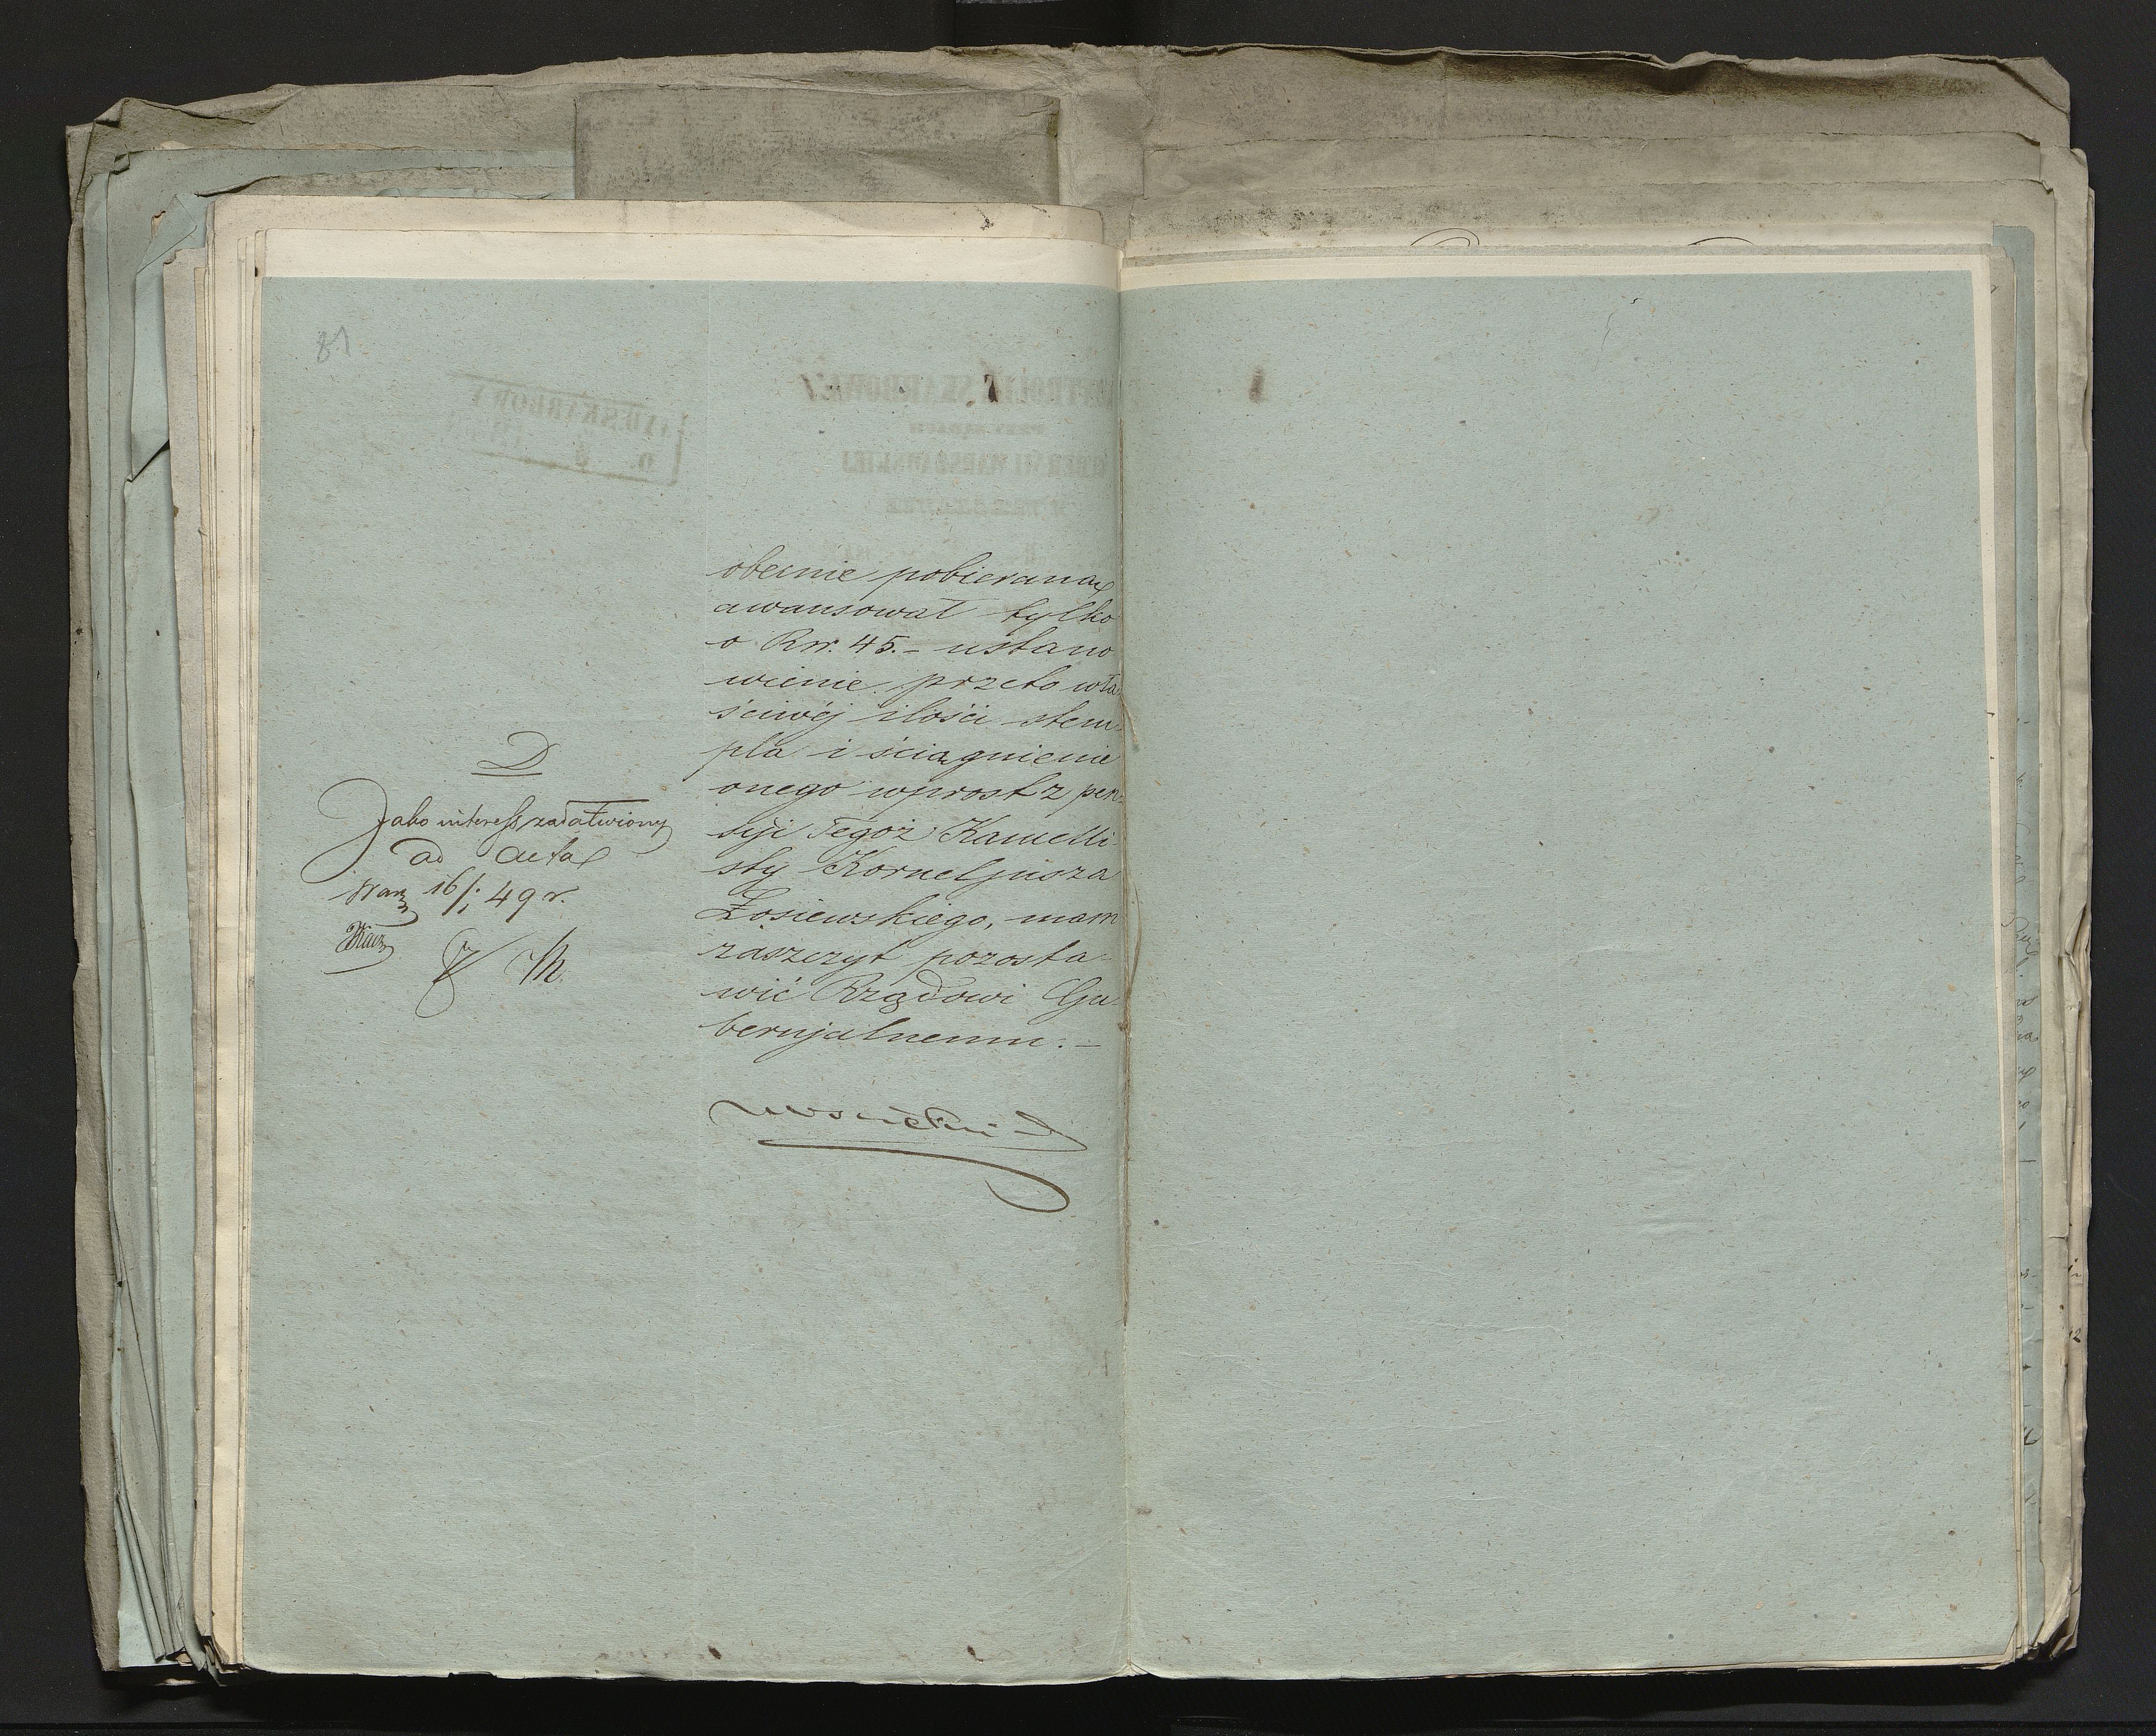 81
obecnie pobierana
awansował tylko
o Rsr. 45.- ustano
wienie przeto wła
ściwéj ilości stem=
pla i ściągnienie
onego wprost z pen=
syi Tegoż Kancelli
sty Korneljusza
Łosiewskiego, mam
zaszczyt pozosta=
wić Rządowi Gu=
bernjalnemu.-
D
Jako interess załatwiony
ad acta
Warz 16/1 49 r.